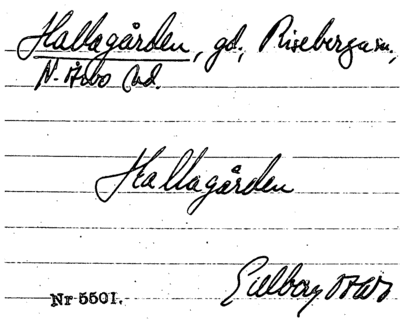 Hallagården, gd., Riseberga sn,
N. Åsbo hd.
Hallagården
Nr 5501.